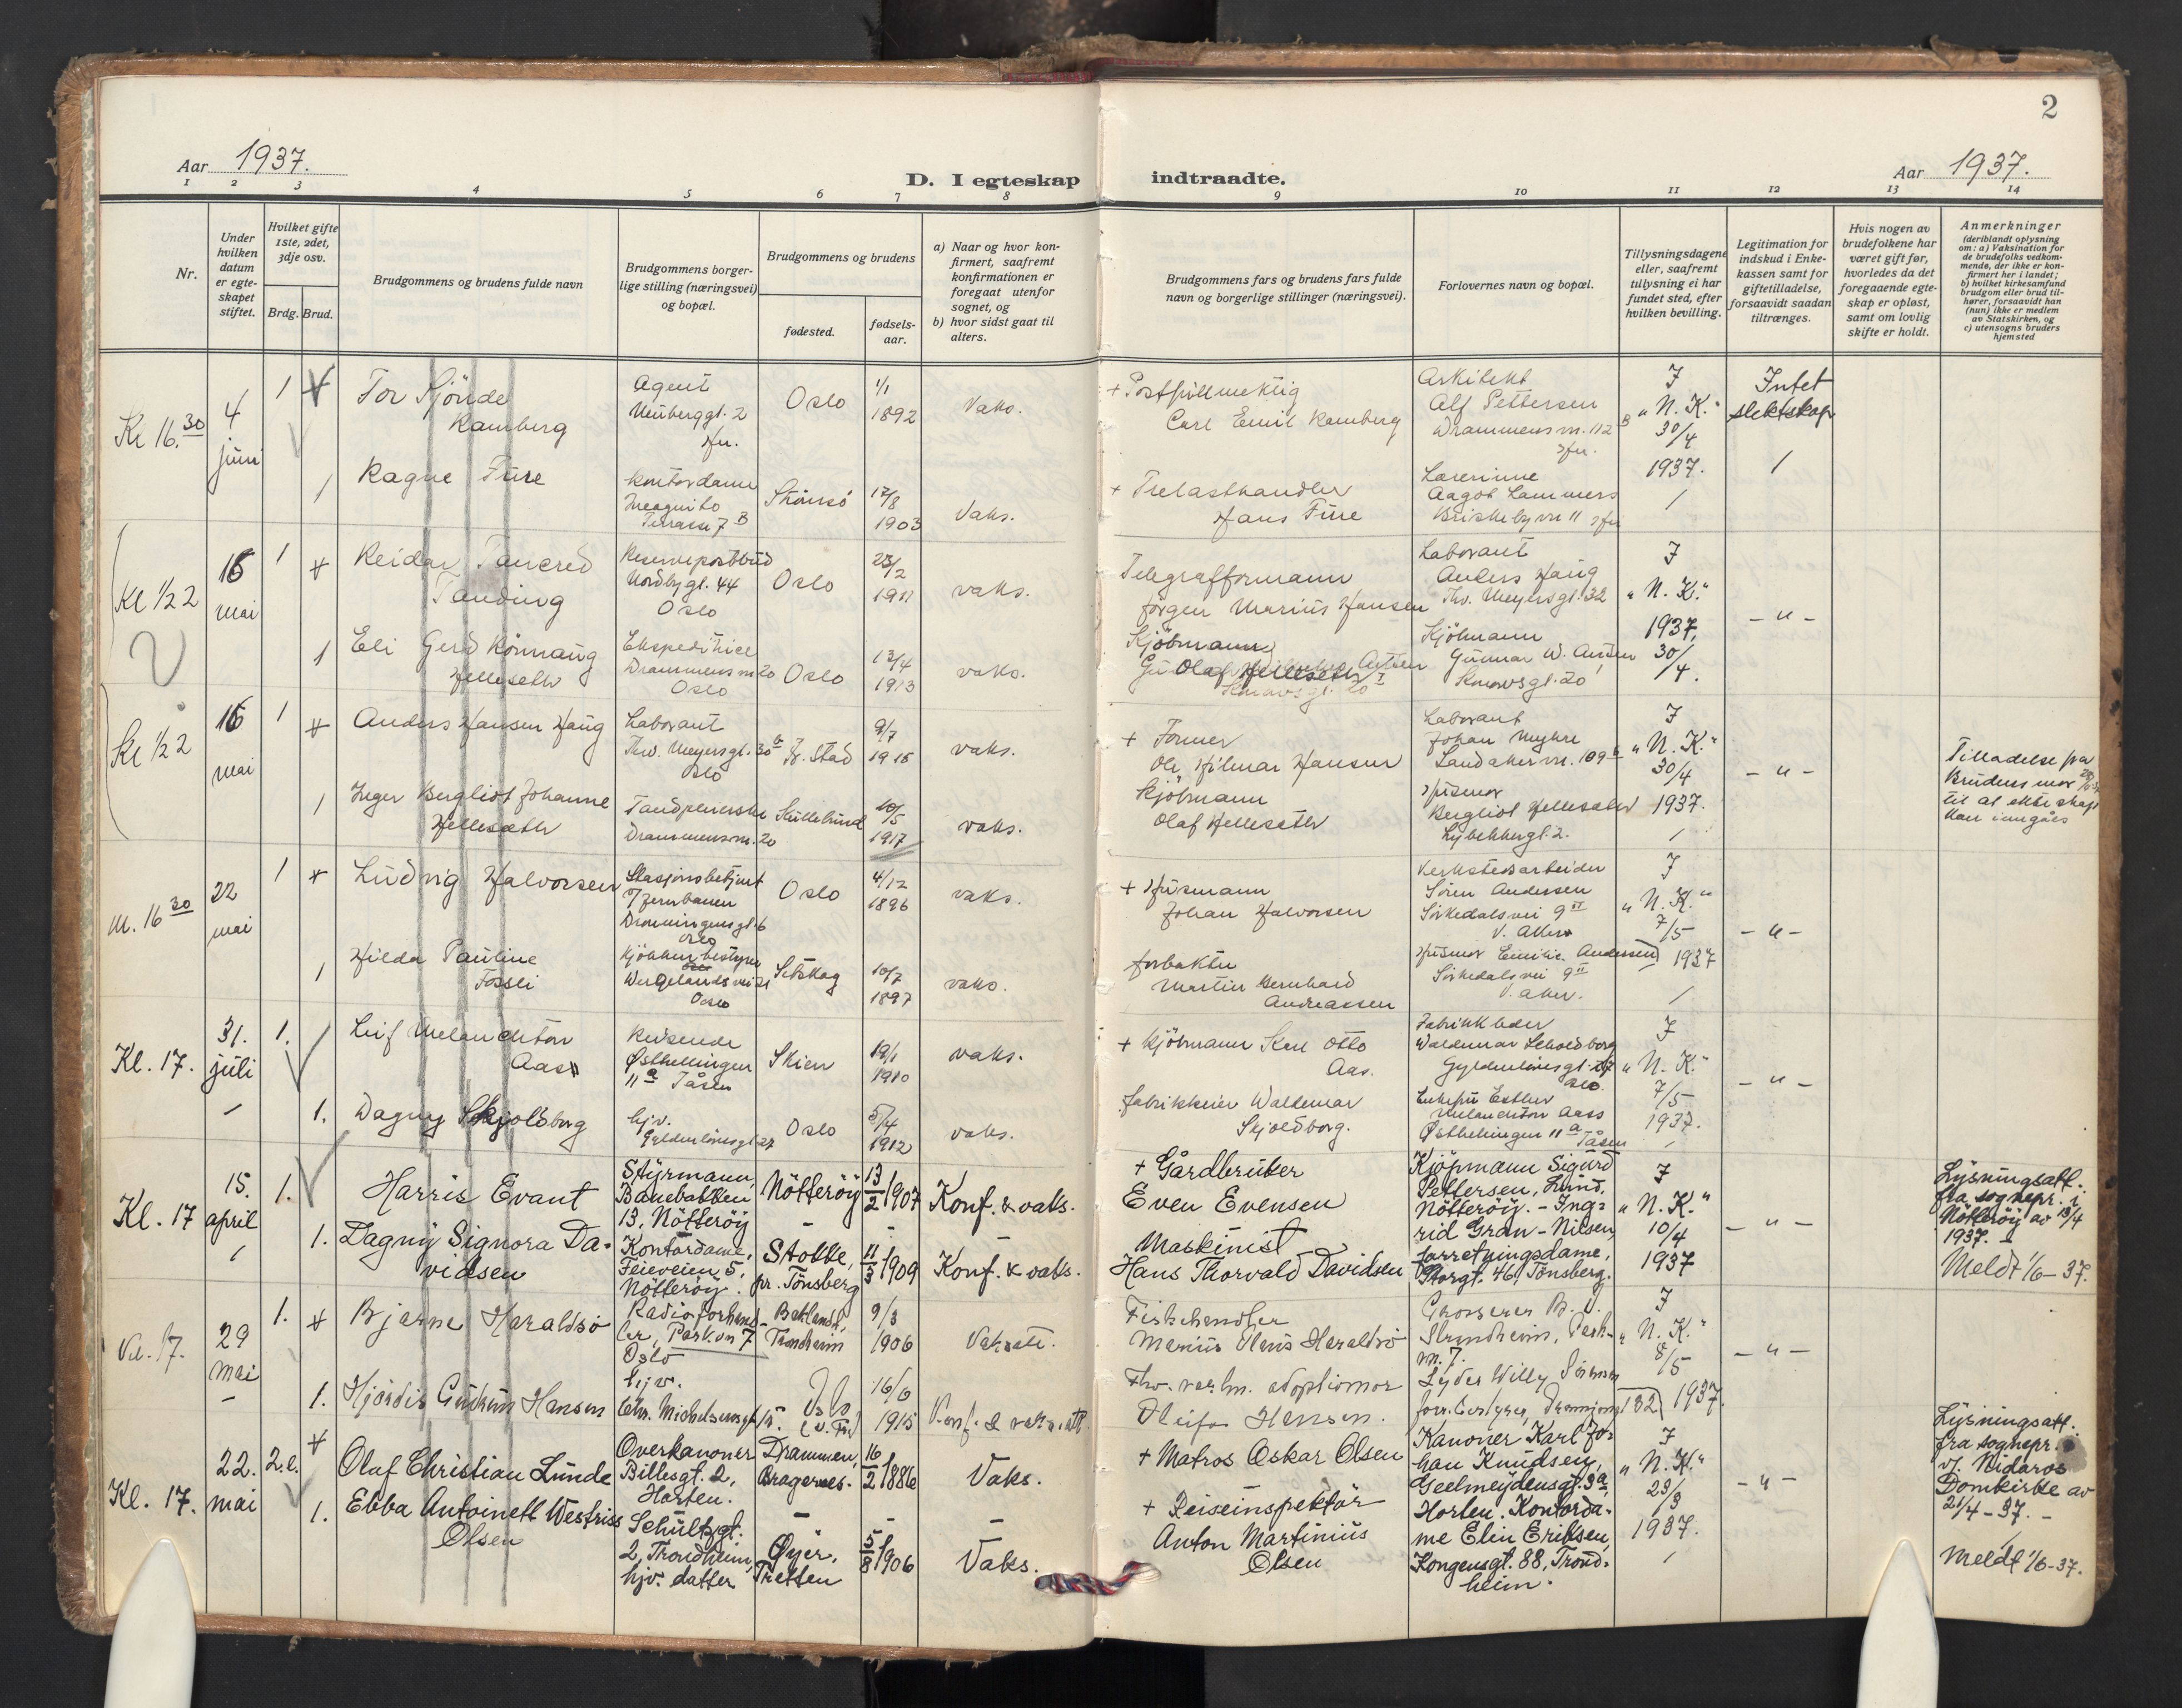 2
Aar 1937.
D. I egteskap indtraadte.
Aar 1937.
1 2 3 4 5 6 7 8 9 10 11 12 13 14
Nr.
Under hvilken datum er egteskapet stiftet.
Hvilket gifte 1ste, 2det, 3dje osv.
Brdg. Brud.
Brudgommens og brudens fulde navn
Brudgommens borgerlige stilling (næringsvei) og bopæl.
Brudgommens og brudens
fødested.
fødselsaar.
a) Naar og hvor konfirmert, saafremt konfirmationen er foregaat utenfor sognet, og
b) hvor sidst gaat til alters.
Brudgommens fars og brudens fars fulde navn og borgerlige stillinger (næringsvei).
Forlovernes navn og bopæl.
Tillysningsdagene eller, saafremt tillysning ei har fundet sted, efter hvilken bevilling.
Legitimation for indskud i Enkekassen samt for giftetilladelse, forsaavidt saadan tiltrænges.
Hvis nogen av brudefolkene har været gift før, hvorledes da det foregaaende egteskap er opløst, samt om lovlig skifte er holdt.
Anmerkninger
(deriblandt oplysning om: a) Vaksination for de brudefolks vedkommende, der ikke er konfirmert her i landet;
b) hvilket kirkesamfund brudgom eller brud tilhører, forsaavidt han (hun) ikke er medlem av Statskirken, og
c) utensogns bruders hjemsted
Kl 16.30
4 juni
1
Tor Sjönde Ramberg
Agent
Neuberggt. 2
Oslo
1/1 1892
Vaks.
+ Postfullmektig
Carl Emil Ramberg
Arkitekt
Alf Pettersen
Drammensvn. 112 B
J
"N. K."
30/4
1937.
Intet slektskap
1
Ragna Fure
Kontordame
Incognito Terrasse 7 B
17/8 1903
Vaks.
+ Trelasthandler
Hans Fure
Lærerinne
Aagot Lammers
Briskebyvn 11
Kl 1/2 2
16 mai
1
Reidar Tancred Tanding
Reservepostbud
Nordbygt. 44
Oslo
Oslo
23/2 1911
vaks.
Telegrafformann
Jørgen Marius Hansen
Laborant
Anders Haug
Thv. Meyersgt. 32
J
"N. K."
1937,
30/4.
- " -
1
Eli Gerd Rönnaug Hellesæth
Ekspeditrice
Drammensvn 20
Oslo
Oslo
13/4 1913
vaks.
Kjöbmann
Olaf Hellesæth
Kjöbmann
Gunnar W. Antsen
Kl 1/2 2
16 mai
1
Anders Hansen Haug
Laborant
Thv. Meyersgt. 30 b
Oslo
Fr. stad
9/7 1915
vaks.
+ Former
Ole Hilmar Hansen
Laborant
Johan Myhre
Sandakervn. 109 b
J
"N. K."
30/4
1937.
- " -
Tilladelse fra Brudens mor til at ekteskap kan inngåes
1
Inger Bergliot Johanne Hellesæth
Tandpleierske
Drammensvn. 20
10/5 1917
vaks.
Kjöbmann
Olaf Hellesæth
Husmor
Bergliot Hellesæth
Lybekkergt. 2.
Kl. 16 30
22 mai
1
Ludvig Halvorsen
Stasjonsbetjent
v/ Jernbanen
Dronningensgt. 6
Oslo
Oslo
4/12 1896
vaks.
+ Husmann
Johan Halvorsen
Verkstedsarbeider
Søren Andersen
Sörkedalsvei 9 II
V. Aker
J
"N. K."
7/5
1937
- " -
1
Hilda Pauline Fossli
Kjökkenbestyrer
Wergelandsvei 21
Oslo
Setskog
10/7 1897
vaks.
forpakter
Martin Bernhard Andreassen
Husmor Emilie Andersen
Sörkedalsvei 9 II
V. Aker.
Kl. 17.
31. juli
1.
Leif Melanchton Aass
Reisende
Østhellingen 11 a Tåsen
Skien
19/1 1910
vaks.
+ Kjöbmann Karl Otto Aas.
Fabrikkleder
Waldemar Schoedborg
Gyldenlövesgt. 27
Oslo.
J
"N. K."
7/5
1937.
- " -
1.
Dagny Skjoldborg
hjv.
Gyldenlövesgt 27
Oslo
5/4 1912
vaks.
fabrikkeier Waldemar Skjoldborg.
Esther Melanchton Aass
Østhellingen 11 a Tåsen
Kl. 17
15. april
1.
Harris Evant
Styrmann,
Banebakken 13, Nötteröy
Nötteröy
13/2 1907
Konf. & vaks.
+ Gårdbruker
Even Evensen
Kjöpmann Sigurd Pettersen, Lund, Nötteröy. - Ingrid Gran-Nilsen, forretningsdame, Storgt. 46, Tönsberg.
J
"N. K."
10/4
1937
- " -
Lysningsatt. fra sognepr. i Nötteröy av 13/4 1937.
Meldt 1/6-37.
1.
Dagny Signora Davidsen
Kontordame,
Feieveien 5, Nötteröy.
Stokke, pr. Tönsberg
11/3 1909
Konf. & vaks.
Maskinist
Hans Thorvald Davidsen
Kl. 17.
29 mai
1.
Bjarne Haraldsö
Radioforhandler, Parkvn 7
Oslo
Baklandet, Trondheim
9/3 1906
Vaksatt.
Fiskehandler
Marius Olens Haraldsö
Grosserer B. J. Strindheim, Parkvn. 7.
J
"N. K."
8/5
1937.
- " -
1.
Hjördis Gudrun Hansen
hjv.
Chr. Michelsensgt
16/6 1915
Konf. & vaks.att.
Oleifa Hansen.
Lyder Willy Sörensen
132
Kl. 17.
22. mai
2.e.
Olaf Christian Lunde
Overkanoner
Billesgt. 2,
Horten.
Drammen, Bragernes.
16/2 1886
Vaks.
+ Matros Oskar Olsen
Kanoner Karl Johan Knudsen, Geelmeydensgt. 3 a, Horten. Kontordame Elin Eriksen, Kongensgt. 88, Trondheim.
J
"N. K."
23/3
1937.
- " -
Lysningsatt. fra sognepr. v. Nidaros Domkirke av 21/4-37. -
Meldt 1/6-37.
1.
Ebba Antoinett Westriss Olsen
Schultzgt. 2, Trondheim,
hjv. datter
Øyer, Tretten
5/8 1906
Vaks.
+ Reiseinspektör
Anton Martinius Olsen